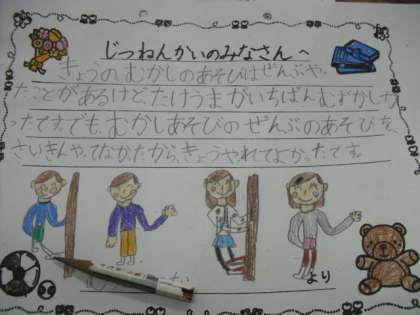 じつねんかいのみなさんへ
きょうのむかしのあそびはぜんぶや
たことがあるけど、たけうまがいちばんむずかしか
ったです。でも、むかしあそびのぜんぶのあそびを、
さいきんやてなかたから、きょうやれてよかったです。
より